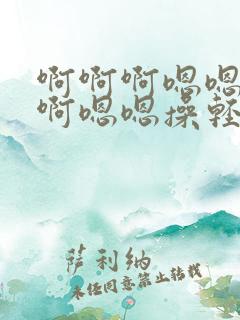 啊啊啊嗯嗯
啊嗯嗯操轻
萨利纳
未经同意禁止转载